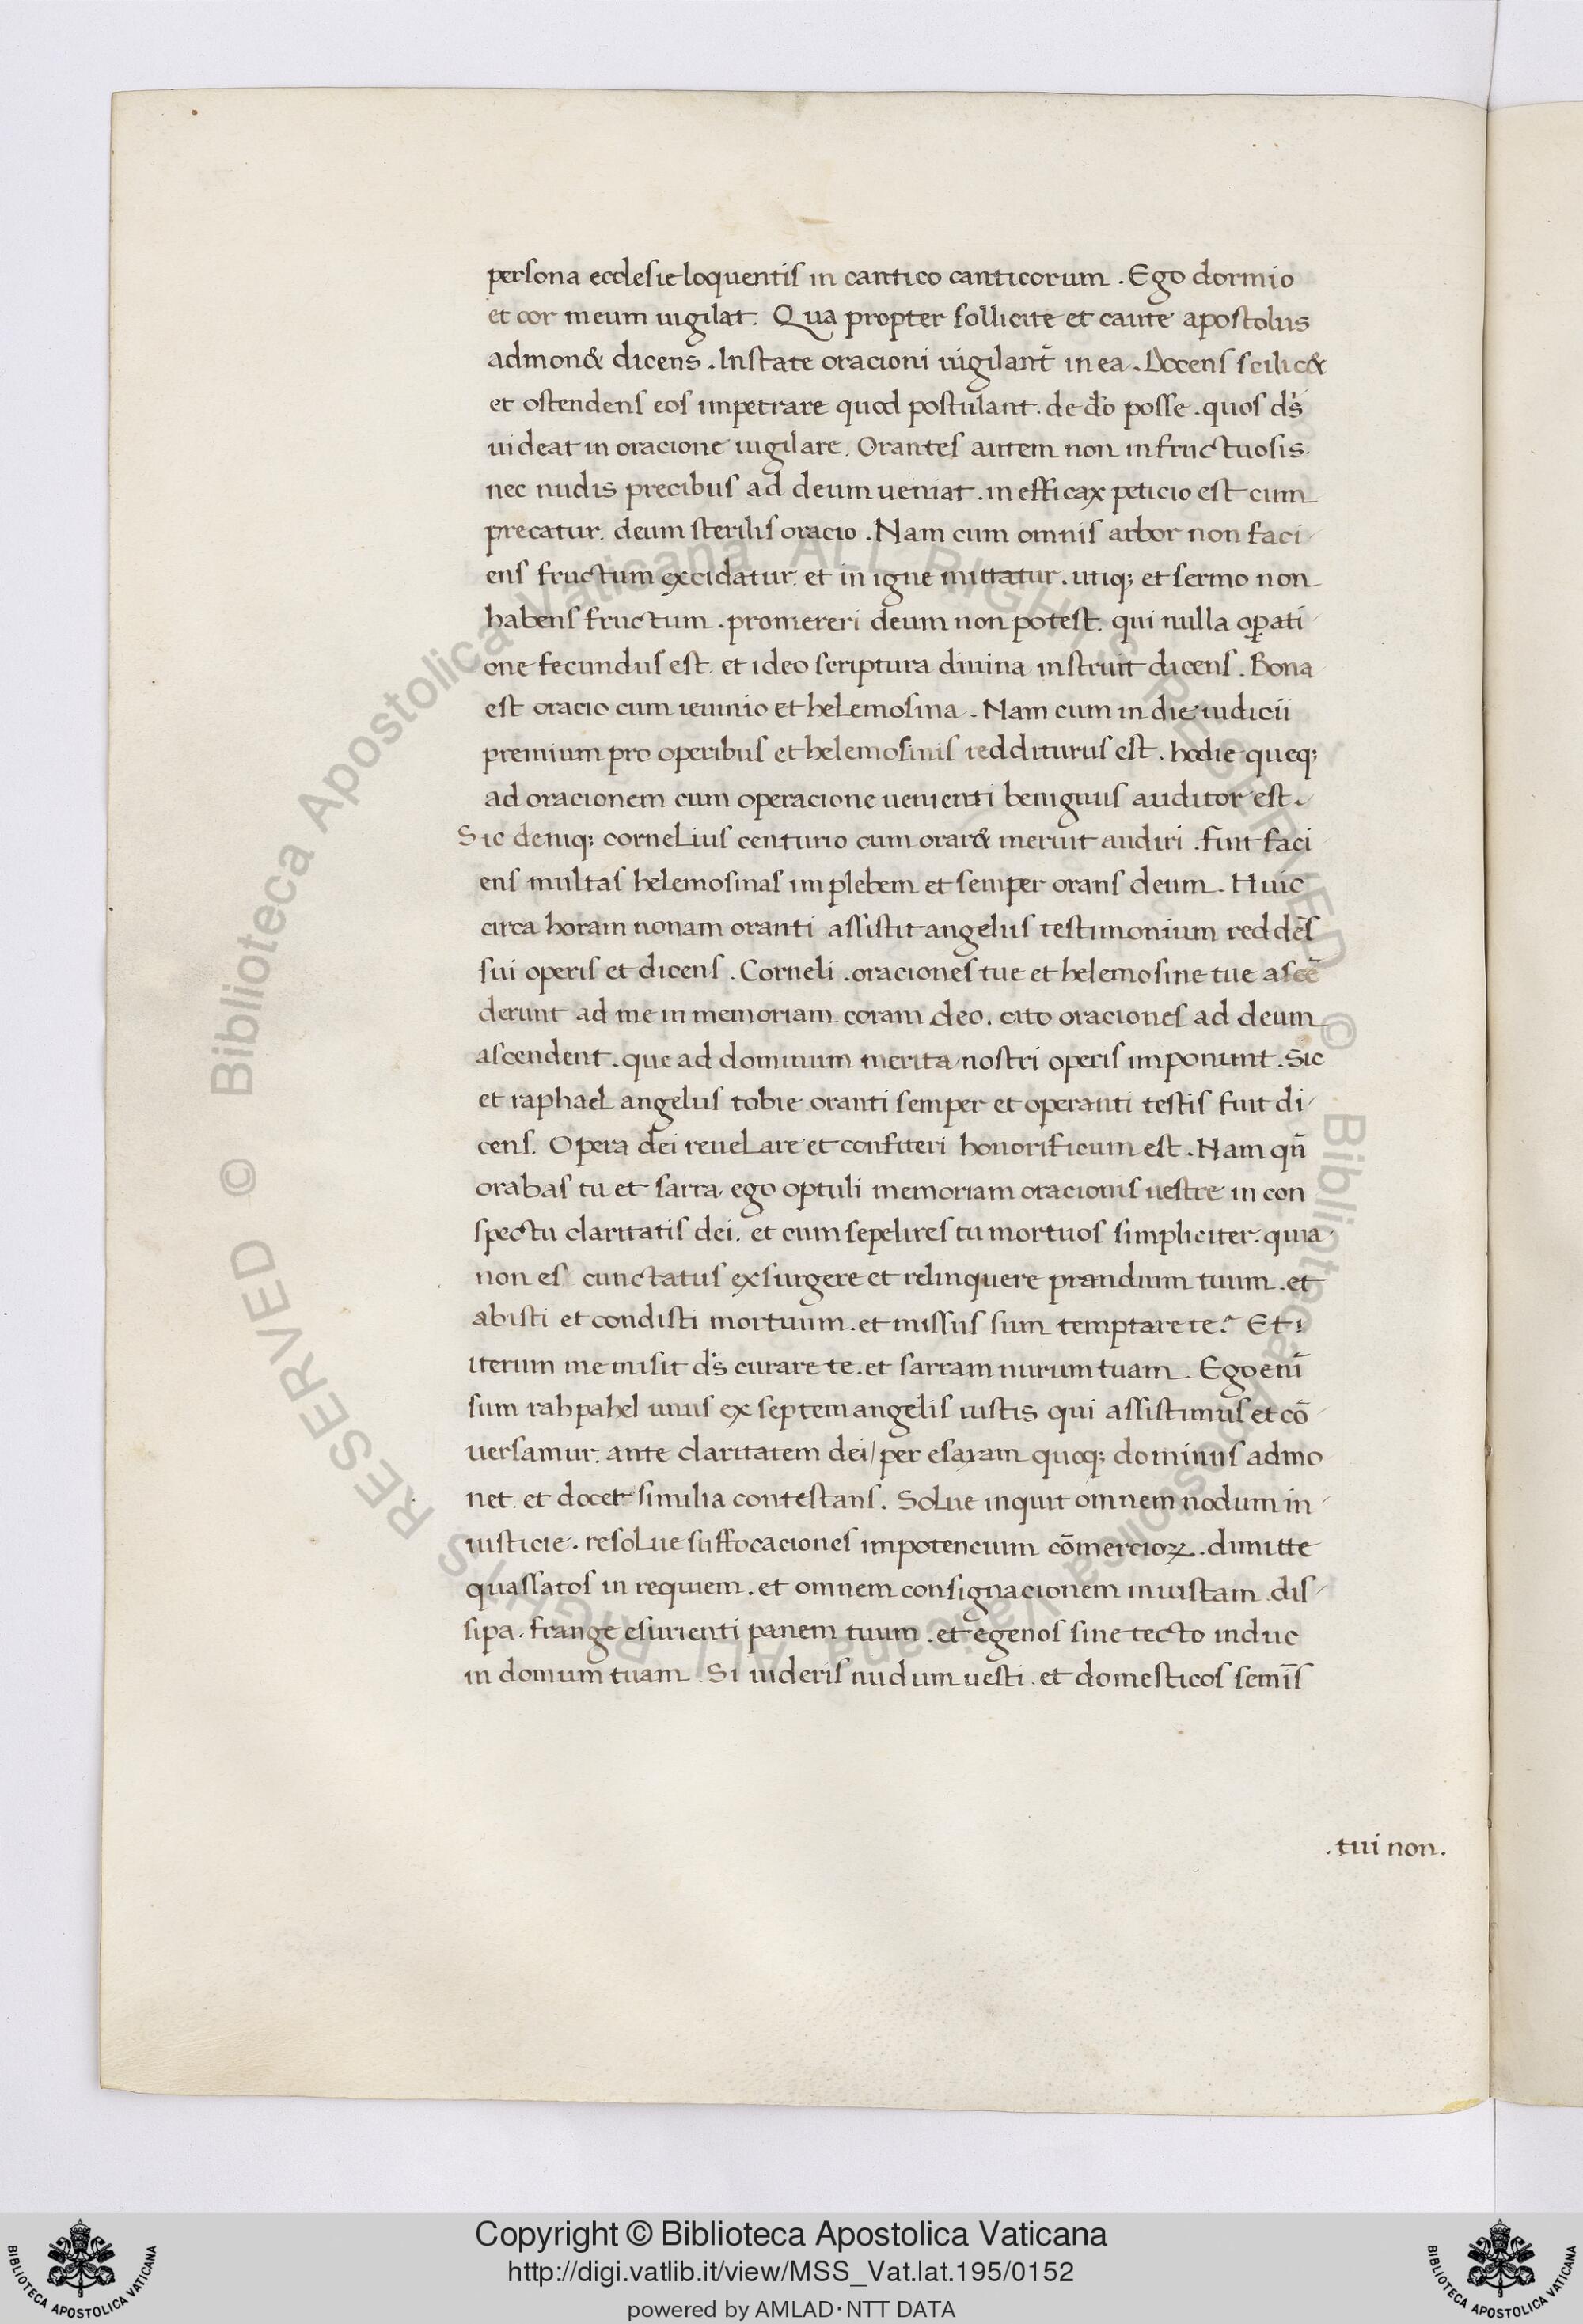 persona ecclesie loquentis in cantico canticorum . Ego dormio
et cor meum uigilat . Qua propter sollicite et caute apostolus
admon& dicens . Instate oracioni uigilant̄ in ea . Docens scilic&
et ostendens eos impetrare quod postulant . de do̅ posse . quos ds̅
uideat in oracione uigilare . Orantes autem non infructuosis .
nec nudis precibus ad deum ueniat . in efficax peticio est cum
precatur . deum sterilis oracio . Nam cum omnis arbor non faci-
ens fructum excidatur . et in igne mittatur . utiq; et sermo non
habens fructum . promereri deum non potest . qui nulla oꝑati-
one fecundus est . et ideo scriptura diuina instruit dicens . Bona
est oracio cum ieiunio et helemosina . Nam cum in die iudicii
premium pro operibus et helemosinis redditurus est . hodie queq;
ad oracionem cum operacione uenienti benignus auditor est .
Sic deniq; cornelius centurio cum orar& meruit audiri . fuit faci
ens multas helemosinas im plebem et semper orans deum . Huic
circa horam nonam oranti assistit angelus testimonium reddēs
sui operis et dicens . Corneli . oraciones tue et helemosine tue ascē
derunt ad me in memoriam coram deo . cito oraciones ad deum
ascendent . que ad dominum merita nostri operis imponunt . Sic
et raphael angelus tobie oranti semper et operanti testis fuit di-
cens . Opera dei reuelare et confiteri honorificum est . Nam qn̄
orabas tu et sarra . ego optuli memoriam oracionis uestre in con
spectu claritatis dei . et cum sepelires tu mortuos simpliciter . quia
non es cunctatus exsurgere et relinquere prandium tuum . et
abisti et condisti mortuum . et missus sum temptare te . Et i
iterum me misit ds̅ curare te . et sarram nurum tuam . Ego enī
sum rahpahel unus ex septem angelis iustis qui assistimus et cō-
uersamur . ante claritatem dei / per esayam quoq; dominus admo
net . et docet similia contestans . Solue inquit omnem nodum in-
iusticie . resolue suffocaciones impotencium cōmercioꝝ . dimitte
quassatos in requiem . et omnem consignacionem iniustam . dis-
sipa . frange esurienti panem tuum . et egenos sine tecto induc
in domum tuam . Si uideris nudum uesti . et domesticos semīs
. tui non .
© Biblioteca Apostolica Vaticana ALL RIGHTS RESERVED © Biblioteca Apostolica Vaticana ALL RIGHTS RESERVED
Copyright © Biblioteca Apostolica Vaticana
http://digi.vatlib.it/view/MSS_Vat.lat.195/0152
powered by AMLAD·NTT DATA
BIBLIOTECA APOSTOLICA VATICANA
BIBLIOTECA APOSTOLICA VATICANA